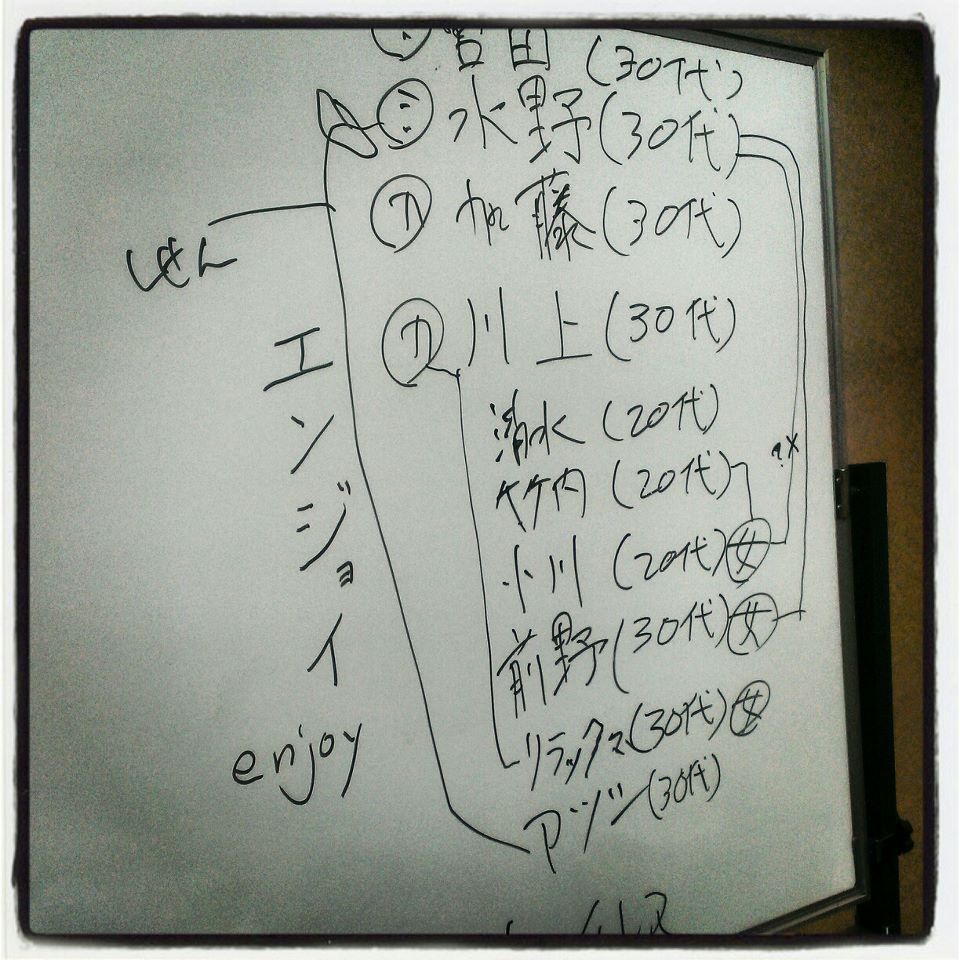 (30代)
ニ 水野(30代)
カ 加藤(30代)
カ 川上(30代)
清水(20代)
竹内(20代)
小川(20代)女
前野(30代)女
リラックマ(30代)女
(30代)
エンジョイ
enjoy